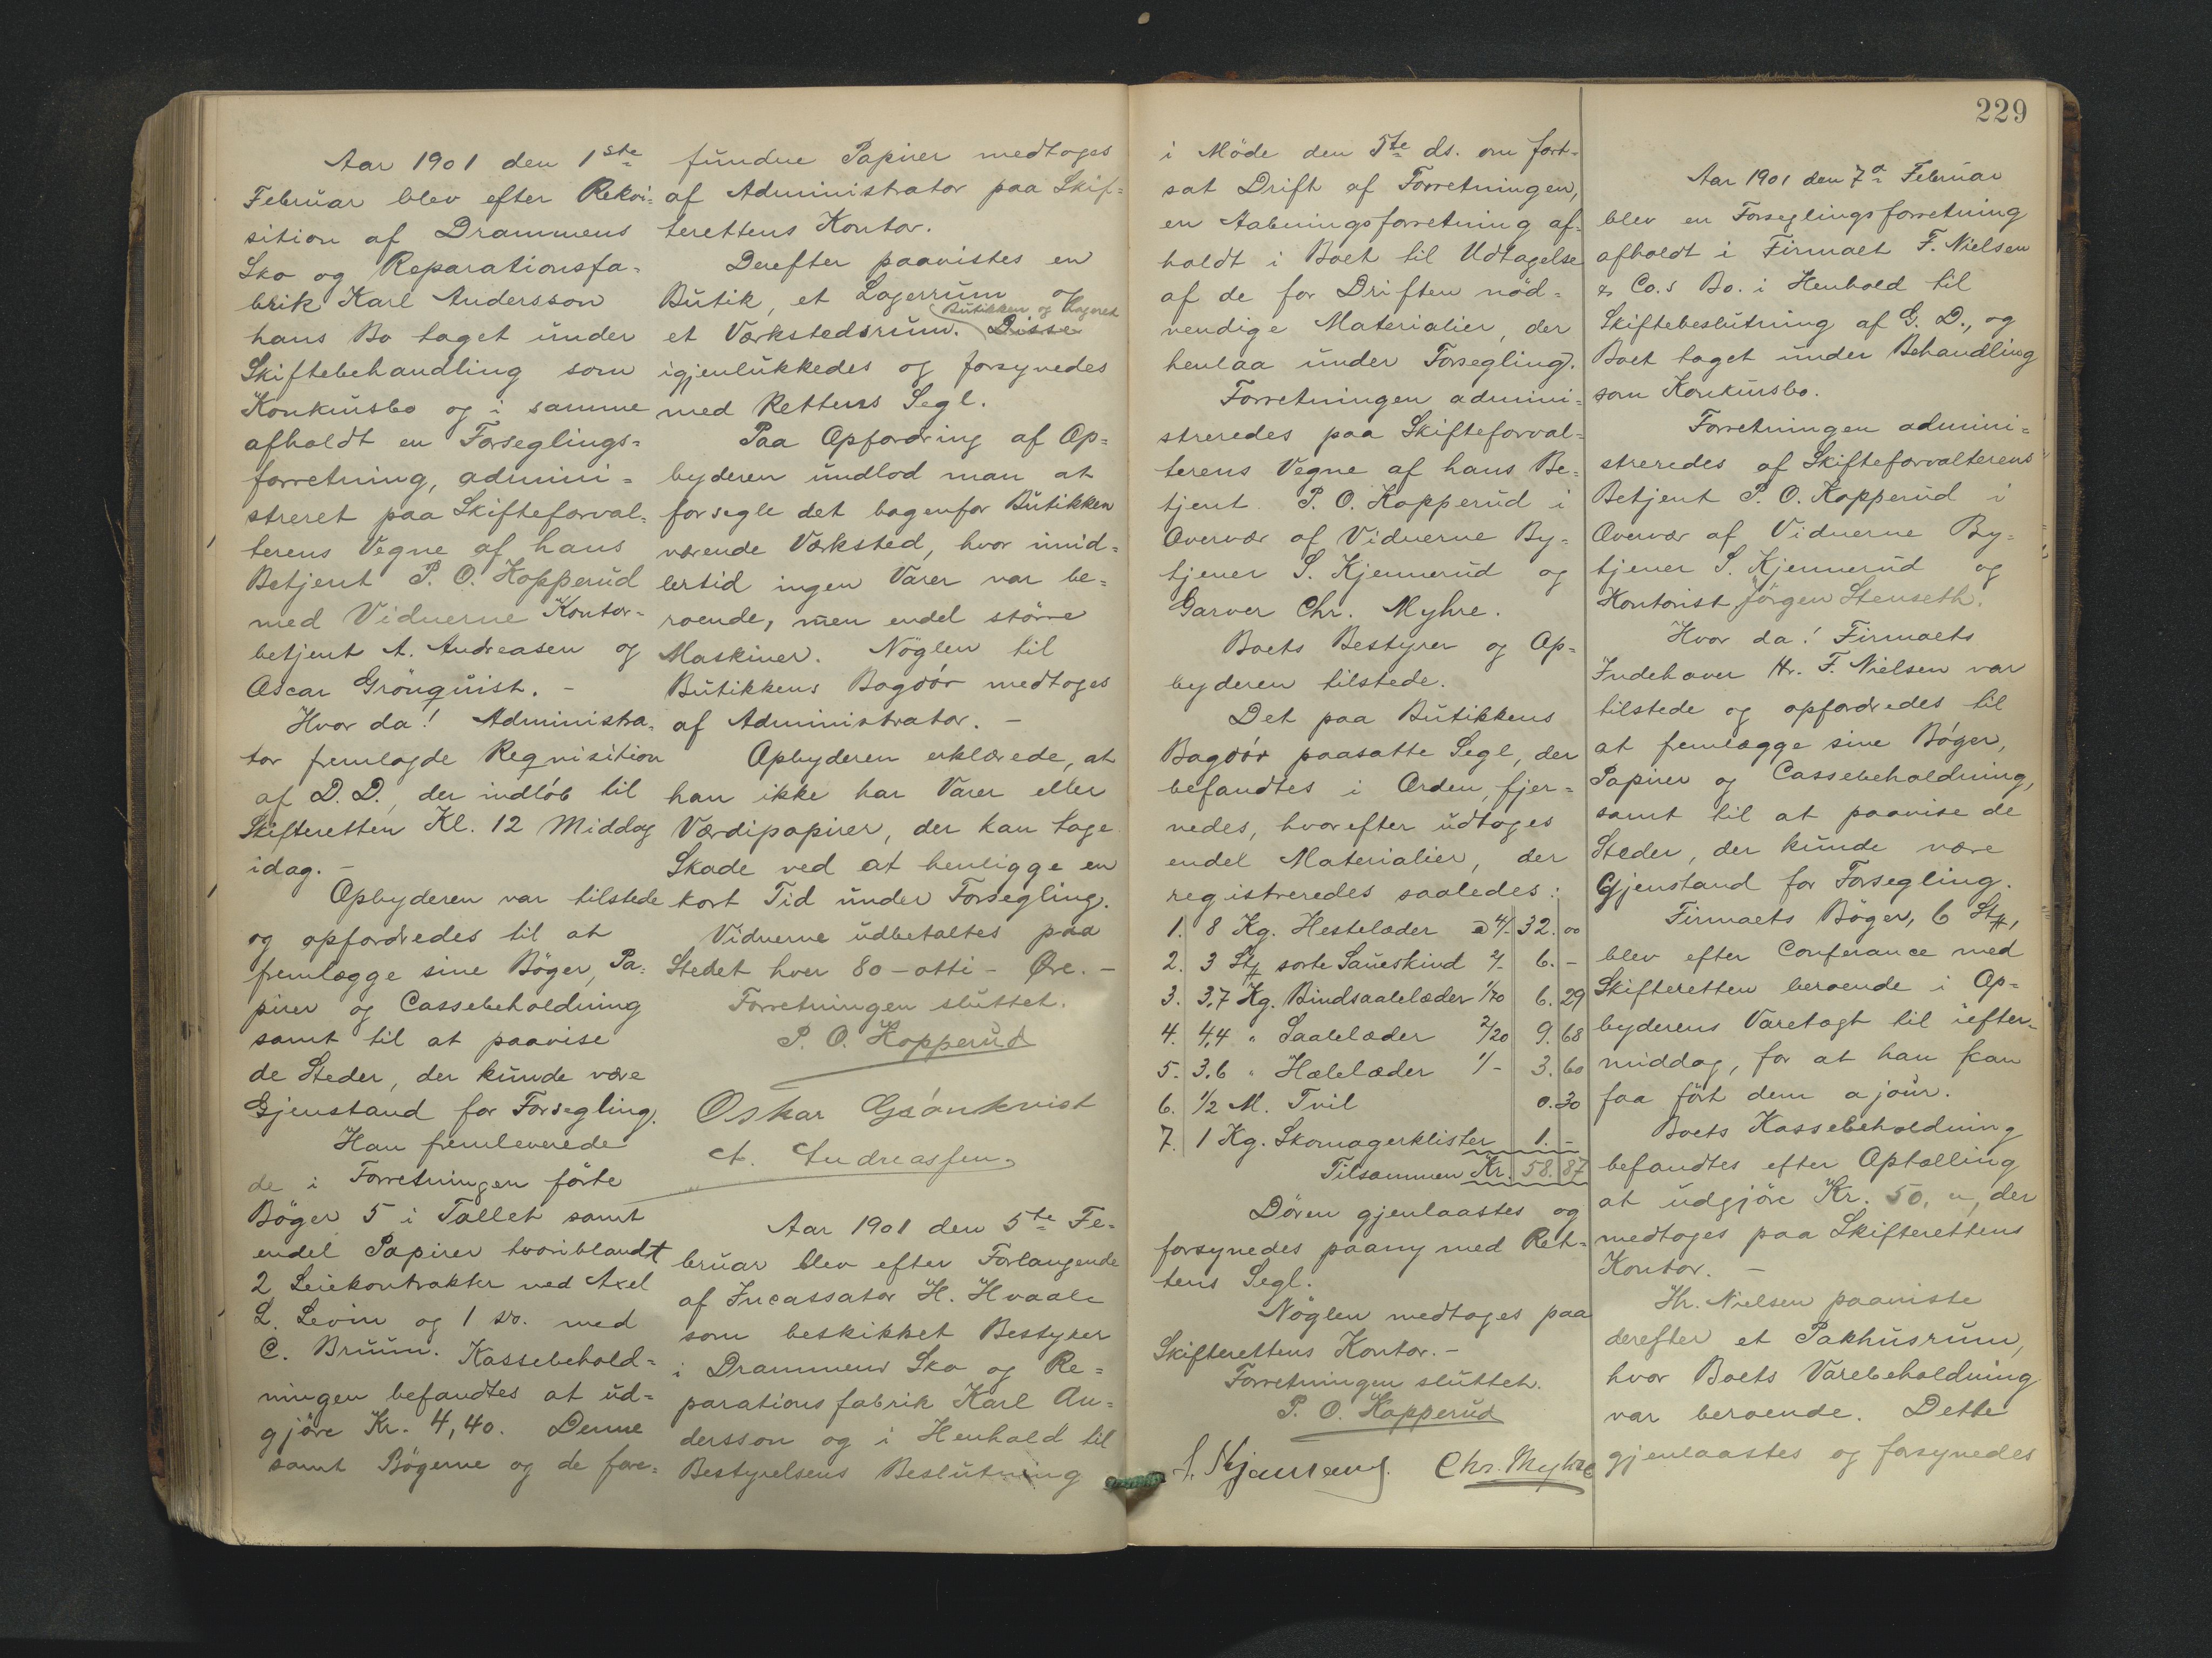 Aar 1901 den 1ste
Februar blev efter Rekvi-
sition af Drammens
Sko og Reparationsfa-
brik Karl Andersson
hans Bo taget under
Skiftebehandling som
Konkursbo og i samme
afholdt en Forseglings-
forretning, admini-
streret paa Skifteforval-
terens Vegne af hans
Betjent P. O. Kopperud
med Vidnerne Kontor-
betjent A. Andreasen og
Oscar Grönquist. -
Hvor da! Administra-
tor fremlagde Reqvisition
af D. D., der indløb til
Skifteretten Kl. 12 Middag
idag. -
Opbyderen var tilstede
og opfordredes til at
fremlægge sine Böger, Pa-
pirer og Cassebeholdning
samt til at paavise
de Steder, der kunde være
Gjenstand for Forsegling.
Han fremleverede
de i Forretningen förte
Böger 5 i Tallet samt
endel Papirer hvoriblandt
2 Leiekontrakter med Axel
L. Levin og 1 do. med
C. Bruun. Kassebehold-
ningen befandtes at ud-
gjöre Kr. 4,40. Denne
samt Bögerne og de fore-
fundne Papirer medtoges
af Administrator paa Skif-
terettens Kontor.
Derefter paavistes en
Butik, et Lagerrum og
Butikken og Lageret
et Værkstedsrum. Disse
igjenlukkedes og forsynedes
med Rettens Segl.
Paa Opfordring af Op-
byderen undlod man at
forsegle det bagenfor Butikken
værende Værksted, hvor imid-
lertid ingen Varer var be-
roende, men endel större
Maskiner. Nöglen til
Butikkens Bagdör medtoges
af Administrator. -
Opbyderen erklærede, at
han ikke har Varer eller
Værdipapirer, der kan tage
Skade ved at henligge en
kort Tid under Forsegling.
Vidnerne udbetaltes paa
Stedet hver 80 - otti - Øre. -
Forretningen sluttet.
P. O. Kopperud
Oskar Grönkvist
A. Andreassen
Aar 1901 den 5te Fe-
bruar blev efter Forlangende
af Incassator H. Hvaale
som beskikket Bestyrer
i Drammens Sko og Re-
parationsfabrik Karl An-
dersson og i Henhold til
Bestyrelsens Beslutning
i Möde den 5te ds. om fort-
sat Drift af Forretningen,
en Aabningsforretning af-
holdt i Boet til Udtagelse
af de for Driften nöd-
vendige Materialier, der
henlaa under Forsegling.
Forretningen admini-
streredes paa Skifteforval-
terens Vegne af hans Be-
tjent P. O. Kopperud i
Overvær af Vidnerne By-
tjener S. Kjennerud og
Garver Chr. Myhre.
Boets Bestyrer og Op-
byderen tilstede.
Det paa Butikkens
Bagdör paasatte Segl, der
befandtes i Orden, fjer-
nedes, hvorefter udtoges
endel Materialier, der
registreredes saaledes:
1. 8 Kg. Hestelæder a 4/- 32.00
2. 3 Stk sorte Saueskind 2/- 6.-
3. 3,7 Kg. Bindsaalelæder 1/70 6.29
4. 4,4 " Saalelæder 2/20 9.68
5. 3,6 " Hælelæder 1/- 3.60
6. 1/2 M. Tvil 0.30
7. 1 Kg. Skomagerklister 1.-
Tilsammen Kr. 58.87
Dören gjenlaastes og
forsynedes paany med Ret-
tens Segl.
Nöglen medtoges paa
Skifterettens Kontor. -
Forretningen sluttet.
P. O. Kopperud
S. Kjennerud. Chr. Myhre
229
Aar 1901 den 7de Februar
blev en Forseglingsforretning
afholdt i Firmaet F. Nielsen
& Co.s Bo. i Henhold til
Skiftebeslutning af G. D., og
Boet taget under Behandling
som Konkursbo.
Forretningen admini-
streredes af Skifteforvalterens
Betjent P. O. Kopperud i
Overvær af Vidnerne By-
tjener S. Kjennerud og
Kontorist Jörgen Stenseth.
Hvor da! Firmaets
Indehaver Hr. F. Nielsen var
tilstede og opfordredes til
at fremlægge sine Böger,
Papirer og Cassebeholdning,
samt til at paavise de
Steder, der kunde være
Gjenstand for Forsegling.
Firmaets Böger, 6 Stk,
blev efter Conferance med
Skifteretten beroende i Op-
byderens Varetægt til iefter-
middag, for at han kan
faa fört dem a jour.
Boets Kassebeholdning
befandtes efter Optælling
at udgjöre Kr. 50. ", der
medtoges paa Skifterettens
Kontor. -
Hr. Nielsen paaviste
derefter et Pakhusrum,
hvor Boets Varebeholdning
var beroende. Dette
gjenlaastes og forsynedes